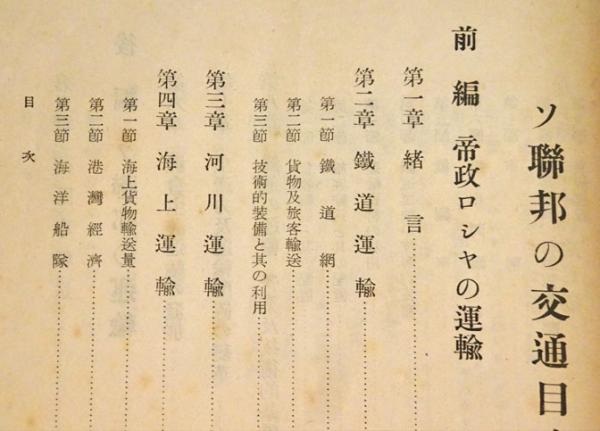 ソ聯邦の交通目
前編 帝政ロシヤの運輸
第一章 緒言
第二章 鐵道運輸
第一節 鐵道網
第二節 貨物及旅客輸送
第三節 技術的裝備と其の利用
第三章 河川運輸
第四章 海上運輸
第一節 海上貨物輸送量
第二節 港灣經濟
第三節 海洋船隊
目次